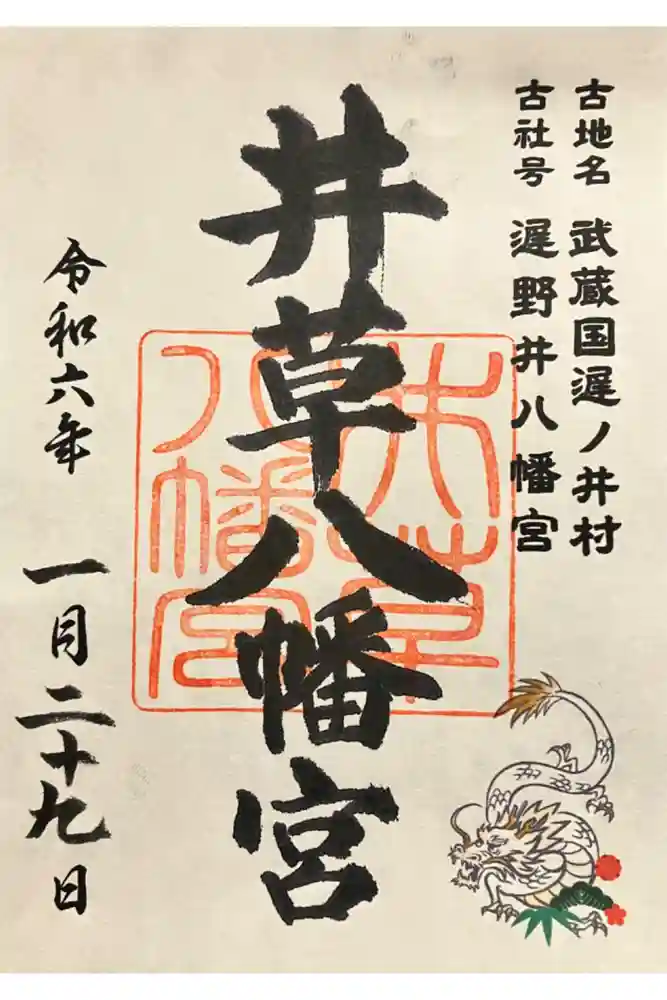 古地名 武蔵国遅ノ井村
古社号 遅野井八幡宮
井草八幡宮
井草八幡宮
令和六年 一月二十九日